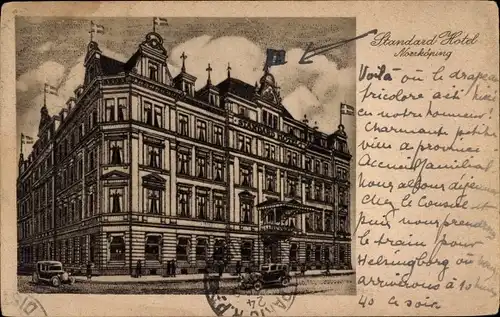 Standard Hotel
Norrköping
Voilà où le drapeau
tricolore a été hissé
en notre honneur!
Charmant petite
ville province
Accueil familial
Nous allons déjeuner
chez le Consul et
puis nous prendrons
le train pour
Helsingborg où nous
arriverons à 10 heures
40 ce soir
STANDARD HOTEL
24